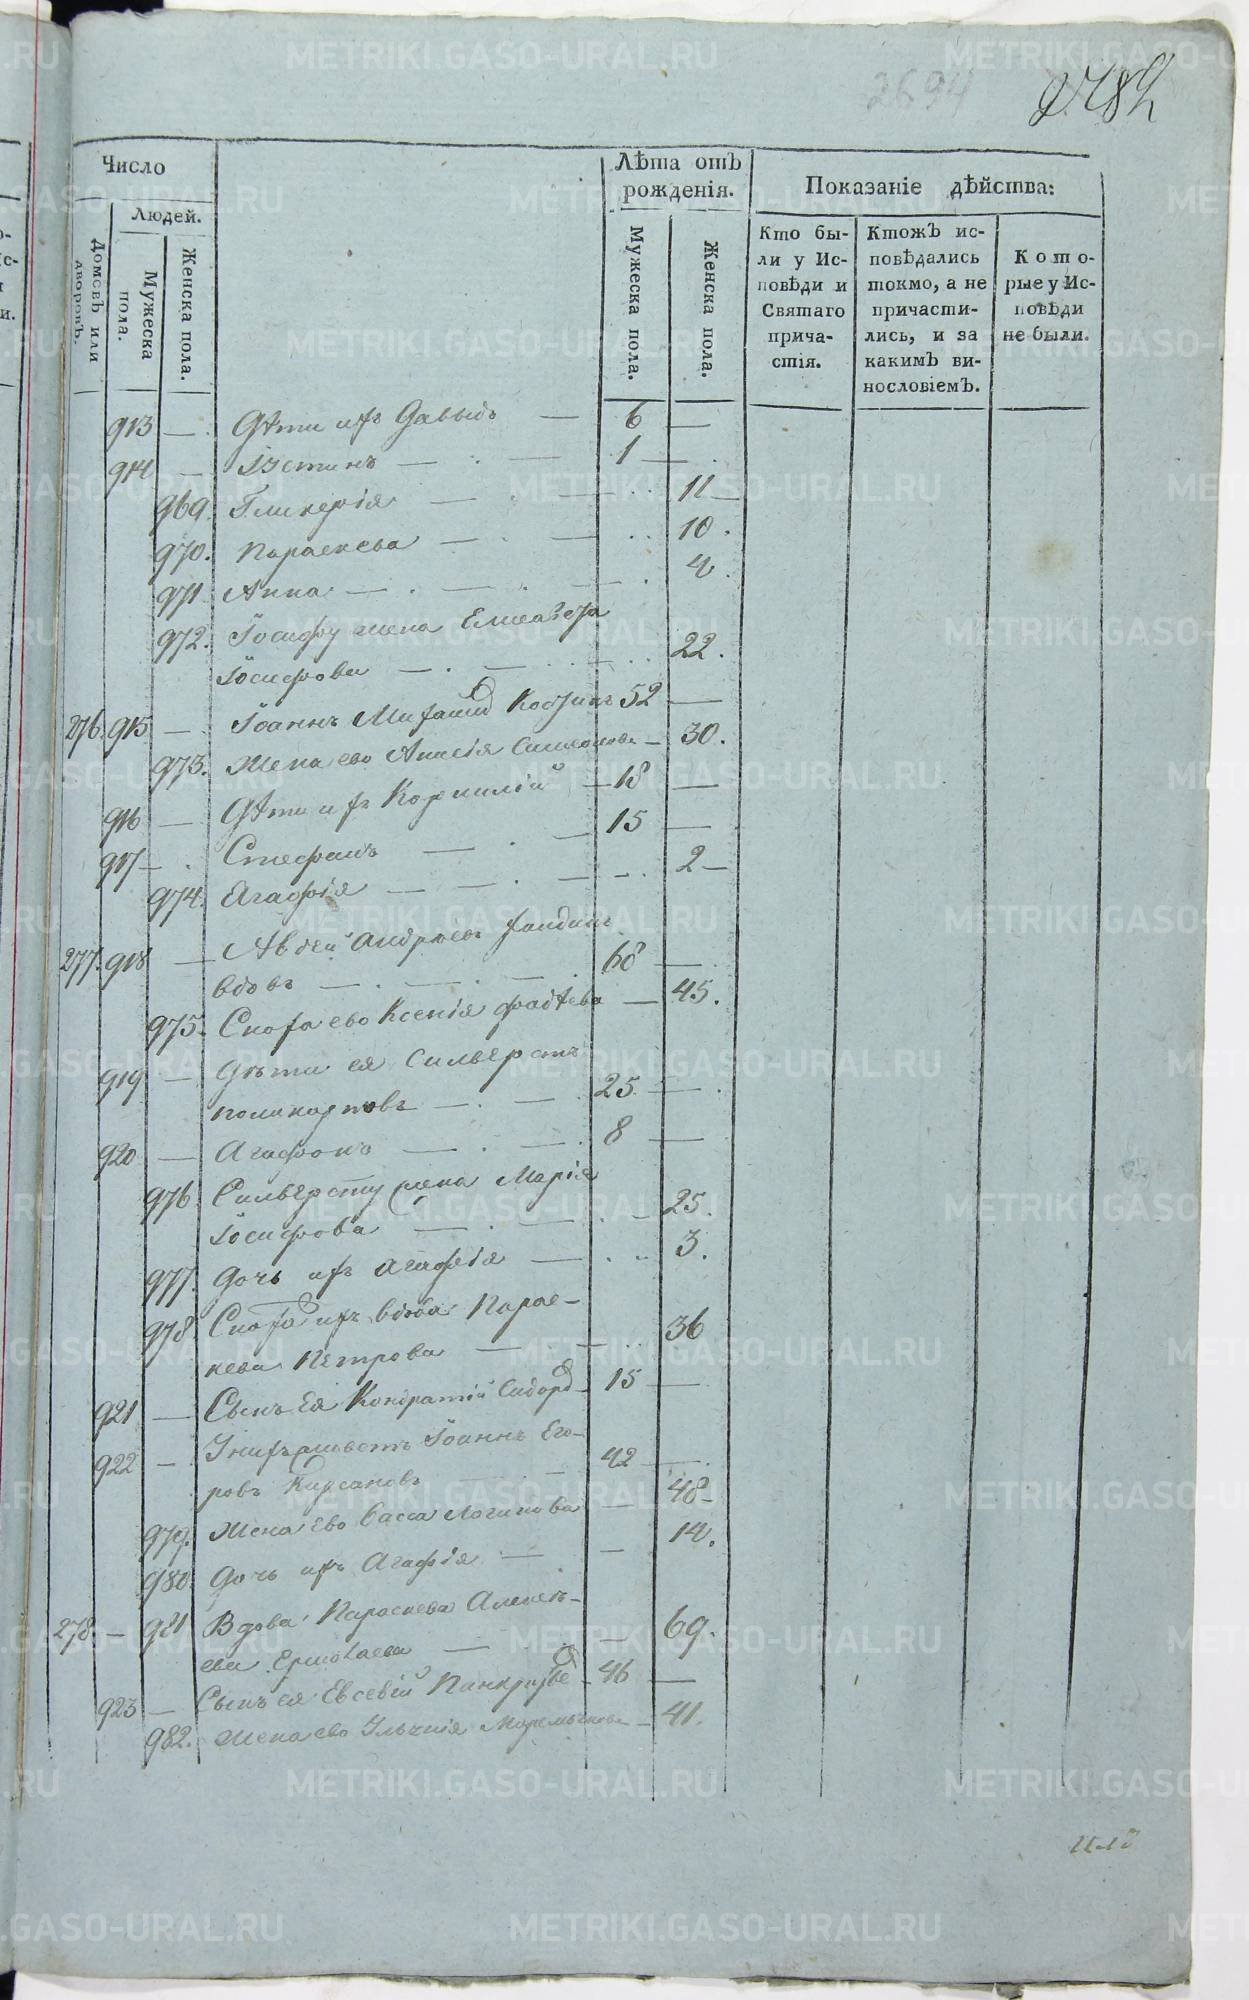 2694
2782
Число
Людей.
Домовъ или дворовъ.
Мужеска пола.
Женска пола.
Лѣта отъ рожденія.
Мужеска пола.
Женска пола.
Показаніе дѣйства:
Кто бы-
ли у Ис-
повѣди и
Святаго
прича-
стія.
Ктожъ ис-
повѣдались
токмо, а не
причасти-
лись, и за
какимъ ви-
нословіемъ.
Кото-
рые у Ис-
повѣди
не были.
913 — Дѣти ихъ Давыдъ — 6 —
914 — Іустинъ — 1 —
969. Гликерія — 11 —
970. Параскева — 10.
971 Анна — 4.
972. Іосифу жена Елисавета
Іосифова — 22.
276. 915 — Іоаннъ 52 —
973. Жена ево Анисія Симеонова — 30.
916 — Дѣти их Корнилій — 18 —
917 — Стефанъ — 15 —
974. Агафія — 2 —
277. 918 — Авдей Андреевъ
вдовъ — 68 —
975. Сноха ево Ксенія Фадѣева — 45.
919 — Дѣти ея Сильверстъ
поликарповъ — 25 —
920 — Агафонъ — 8 —
976 Сильверсту жена Марія
Іосифова — 25.
977. Дочь ихъ Агафія — 3.
978. Сноха ихъ вдова Парас-
кева Петрова — 36
921 — Сынъ Ея Кондратій Сидоровъ — 15 —
922 — Іоаннъ Его-
ровъ Кирсановъ 42 —
979. Жена Ево Васса Логинова — 48 —
980 Дочь ихъ Агафія — 14.
278 — 981 Вдова Параскева Алексѣ-
ева Ермолаева — 69.
923 — Сынъ ея Евсевій — 46 —
982. Жена ево — 41.
METRIKI.GASO-URAL.RU